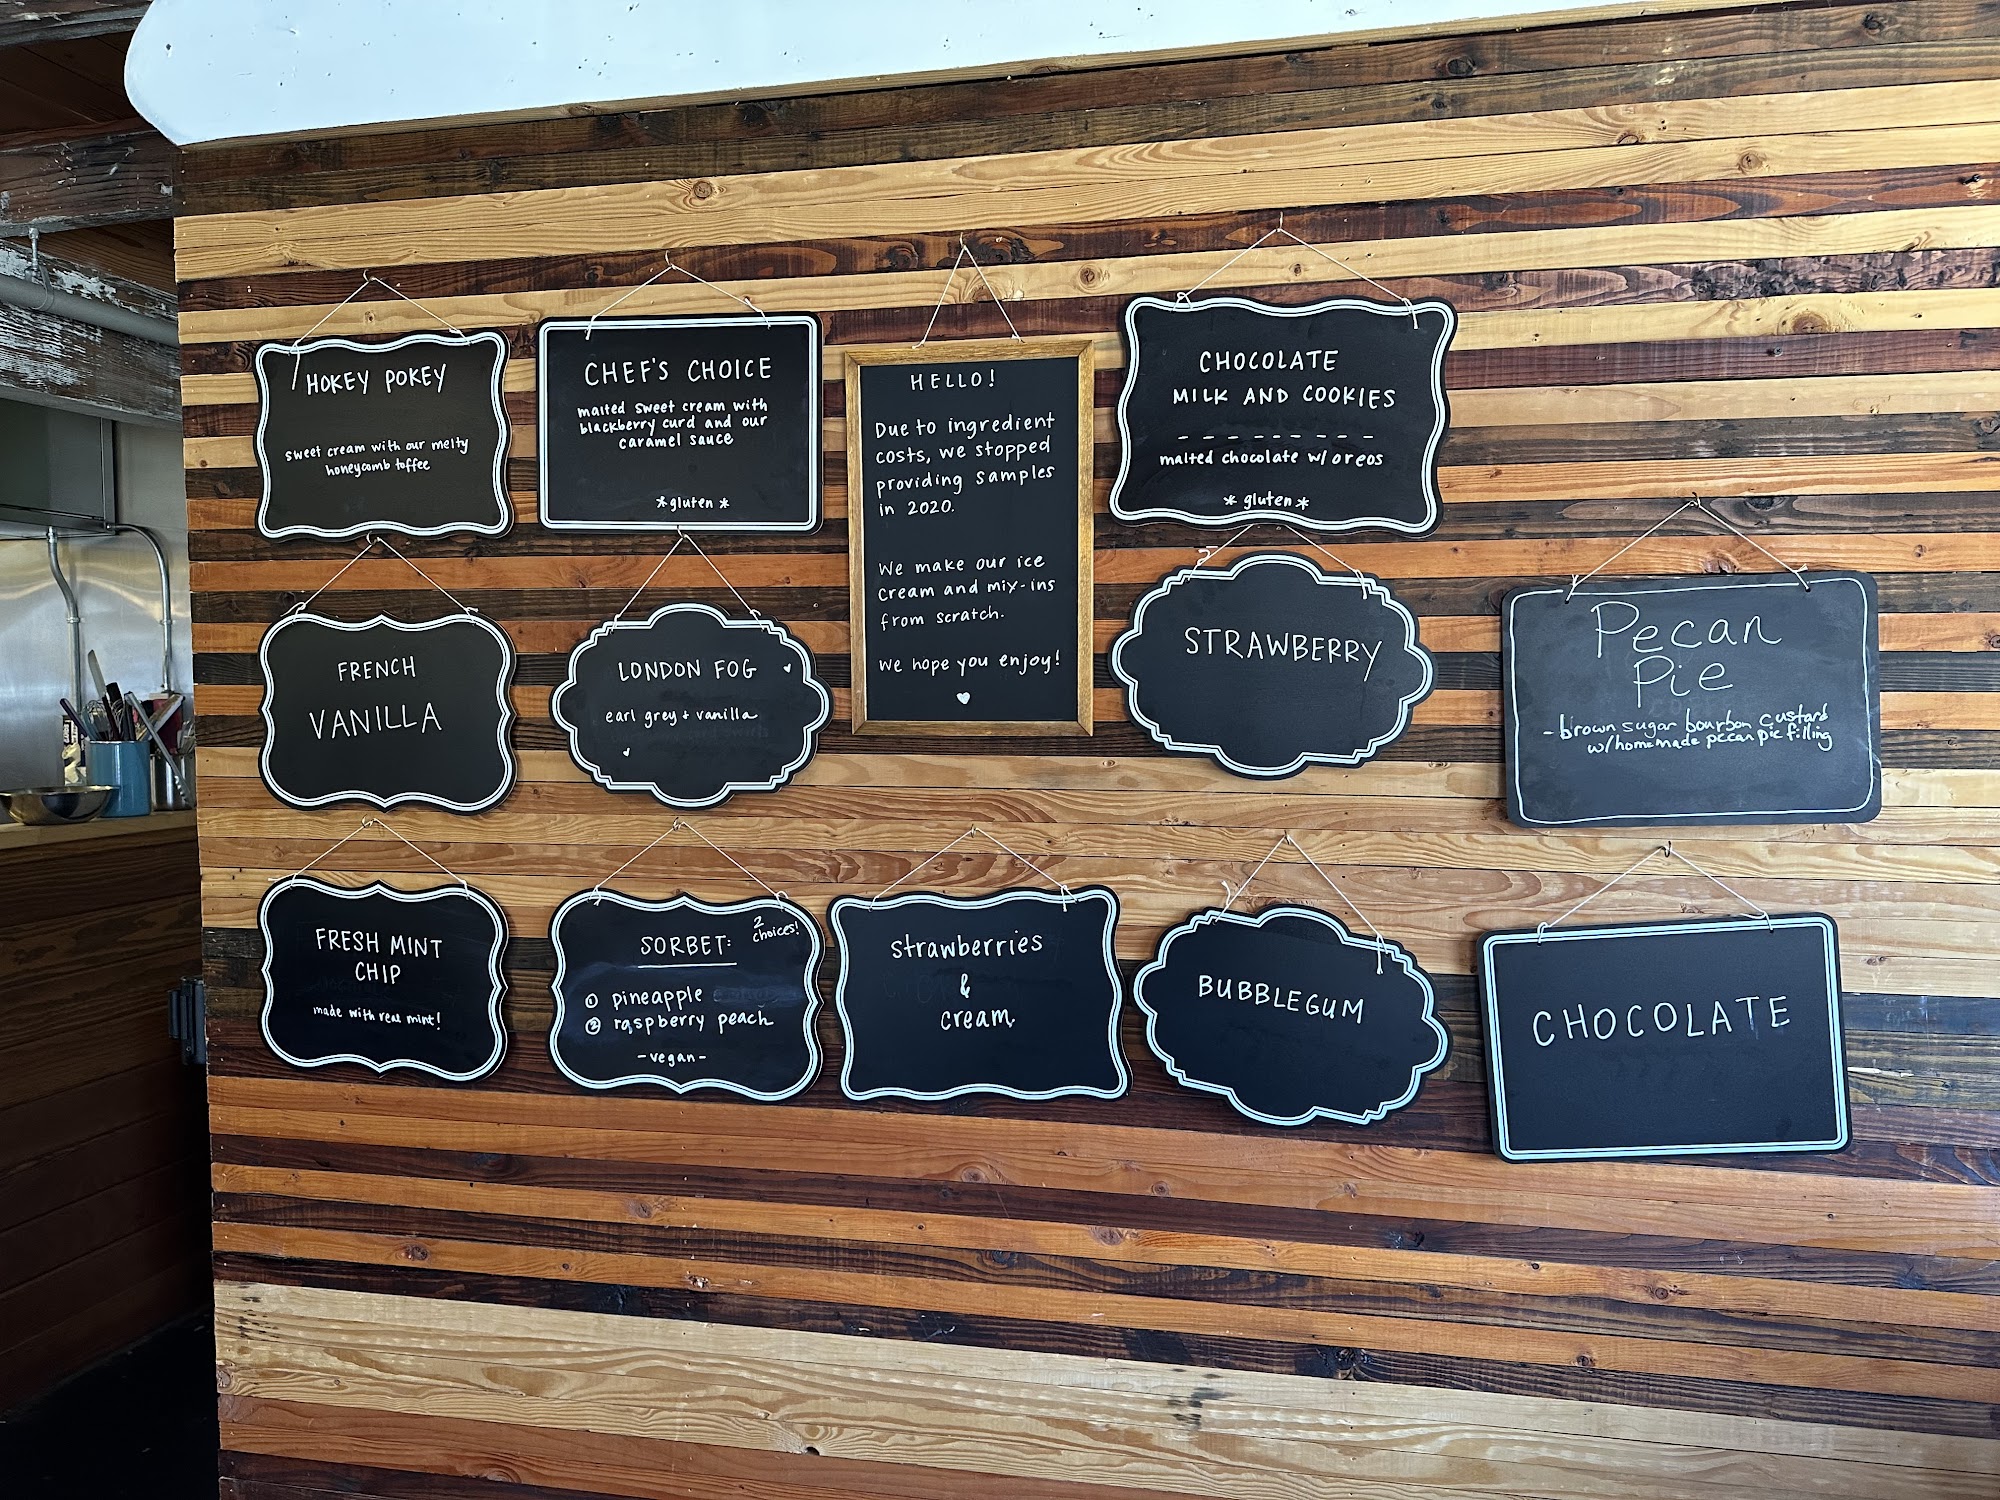 HOKEY POKEY
sweet cream with our melty
honeycomb toffee
CHEF'S CHOICE
malted sweet cream with
blackberry curd and our
caramel sauce
*gluten*
HELLO!
Due to ingredient
costs, we stopped
providing samples
in 2020.
We make our ice
cream and mix-ins
from scratch.
We hope you enjoy!
CHOCOLATE
MILK AND COOKIES
malted chocolate w/ oreos
*gluten*
FRENCH
VANILLA
LONDON FOG
earl grey + vanilla
STRAWBERRY
Pecan
Pie
- brown sugar bourbon custard
w/homemade pecan pie filling
FRESH MINT
CHIP
made with real mint!
2
choices!
SORBET:
① pineapple
② raspberry peach
-vegan-
strawberries
&
cream
BUBBLEGUM
CHOCOLATE